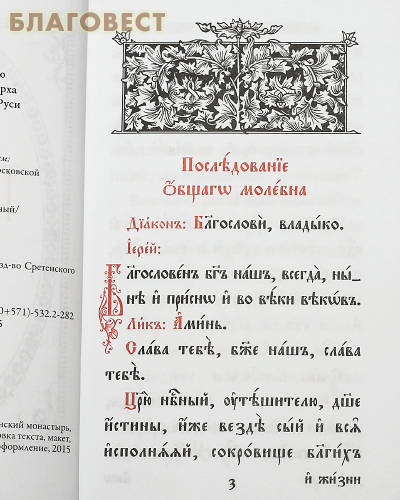 БЛАГОВЕСТ
ю
рха
Руси
ем:
осковской
ный/
зд-во Сретенского
0+571)-532.2-282
5
нский монастырь,
овка текста, макет,
оформление, 2015
Послѣ́дованїе
ѻ҆́бщагѡ моле́бна
Дїа́конъ: Бл҃гословѝ, влады́ко.
І҆ере́й:
Бл҃гослове́нъ бг҃ъ на́шъ, всегда̀, ны́-
нѣ и҆ при́снѡ и҆ во вѣ́ки вѣкѡ́въ.
Ли́къ: А҆ми́нь.
Сла́ва тебѣ̀, бж҃е на́шъ, сла́ва
тебѣ̀.
Цр҃ю̀ нбⷭ҇ный, ᲂу҆тѣ́шителю, дш҃е
и҆́стины, и҆́же вездѣ̀ сы́й и҆ всѧ̑
и҆сполнѧ́ѧй, сокро́вище бл҃ги́хъ
3
и҆ жи́зни